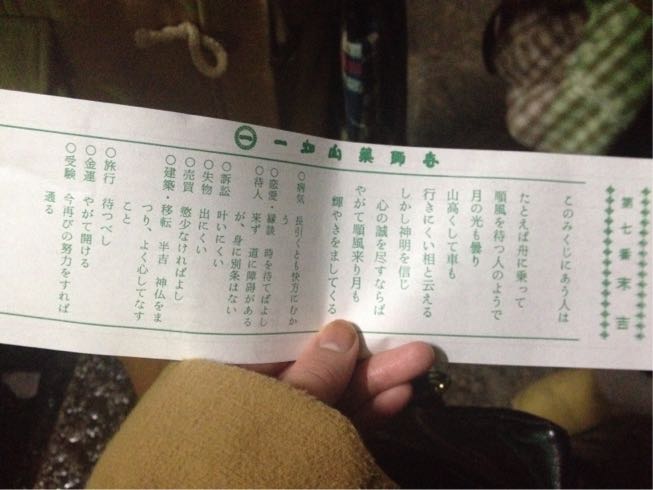 第七番 末吉
一畑山薬師寺
このみくじにあう人は
たとえば舟に乗って
順風を待つ人のようで
月の光も曇り
山高くして車も
行きにくい相と云える
しかし神明を信じ
心の誠を尽すならば
やがて順風来り月も
輝やきをましてくる
○病気 長引くとも快方にむか
う
○恋愛・縁談 時を待てばよし
○待人 来ず 道に障碍がある
が、身に別条はない
○訴訟 叶いにくい
○失物 出にくい
○売買 慾少なければよし
○建築・移転 半吉 神仏をま
つり、よく心してなす
こと
○旅行 待つべし
○金運 やがて開ける
○受験 今再びの努力をすれば
通る